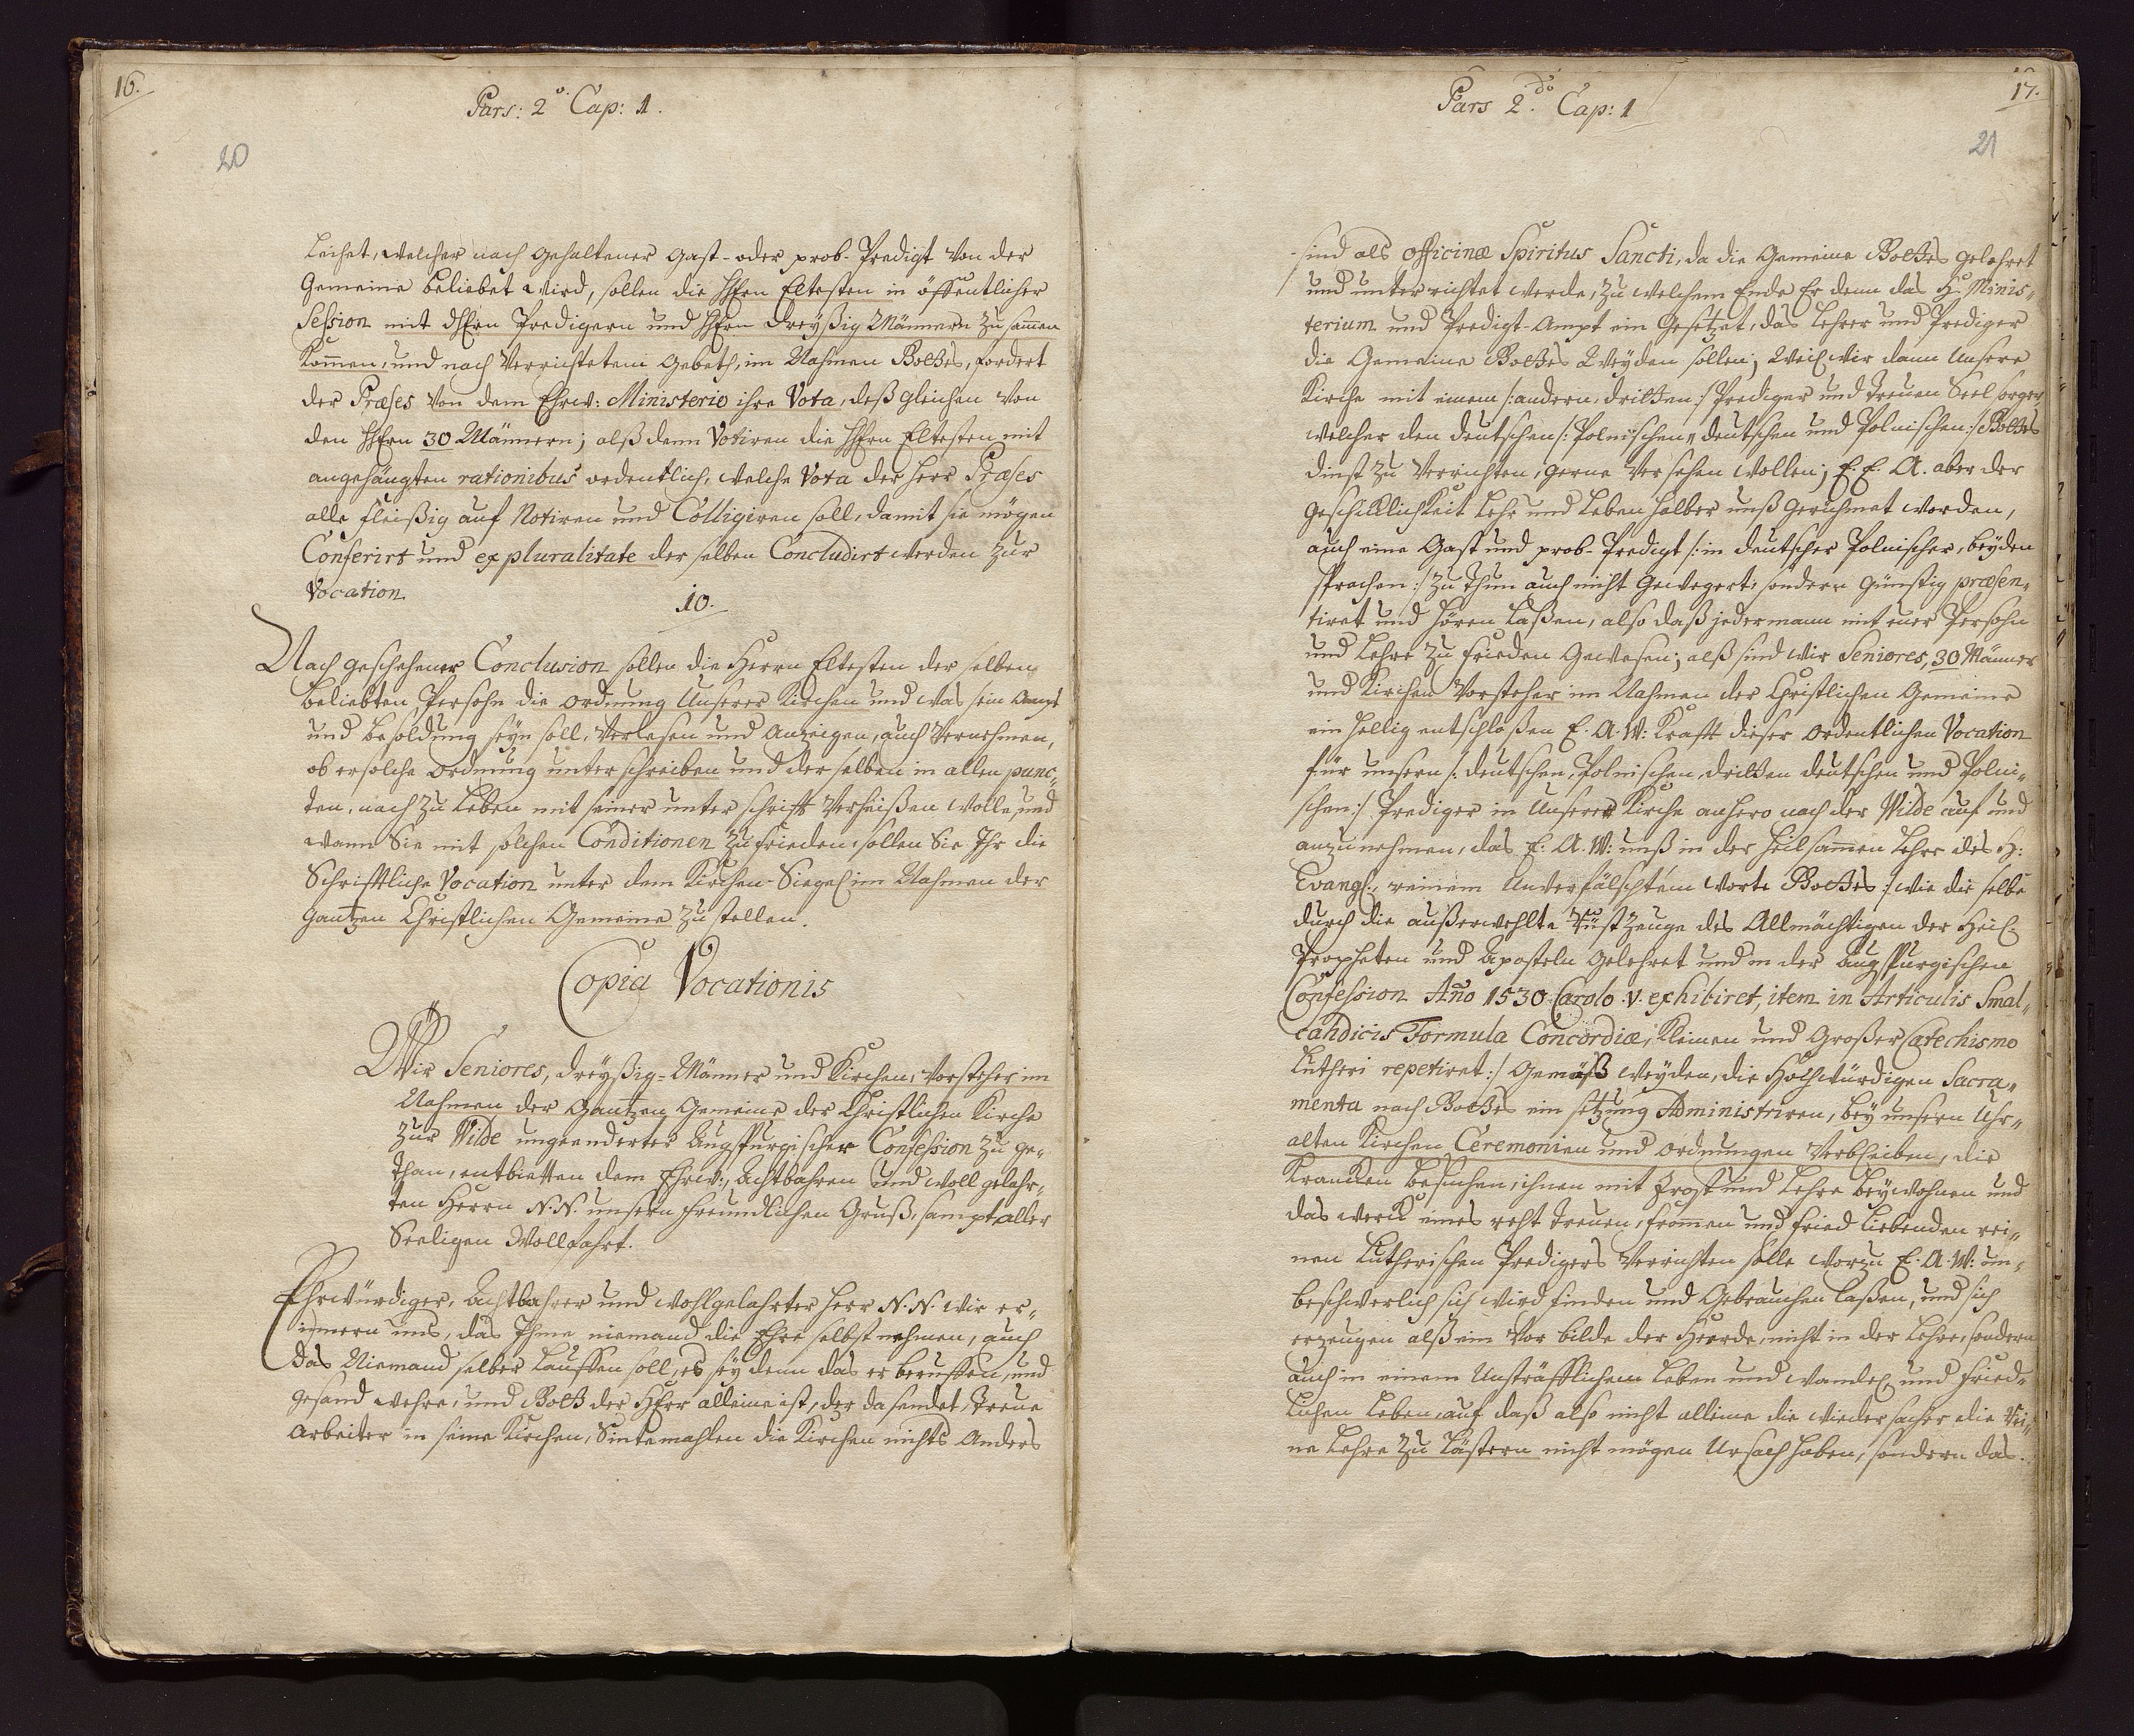 16.
Pars: 2º Cap: 1.
20
leihet, welcher nach gehaltener Gast- oder prob-Predigt von der
Gemeine beliebet wird, sollen die HHrn Eltesten in öffentlicher
Session mit dHrn Predigern und HHrn Dreyßig Männern zusammen
kommen, und nach verrichtetem Gebeth, im Nahmen Gottes, fordert
der Præses von dem Ehrw: Ministerio ihre Vota, deßgleichen von
den HHrn 30 Männern; alß denn Votiren die HHrn Eltesten mit
angehängten rationibus ordentlich, welche Vota der Herr Præses
alle fleißig auf Notiren und Colligiren soll, damit sie mögen
Conferirt und ex pluralitate der selben Concludirt werden zur
Vocation.
10.
Nach geschehener Conclusion sollen die Herrn Eltesten der selben
beliebten Persohn die Ordnung Unserer Kirchen und was sein Ampt
und besoldung seyn soll, Verlesen und Anzeigen, auch Vernehmen,
ob er solche Ordnung unterschreiben und der selben in allen punc-
ten, nach zu leben mit seiner unterschrifft Verheißen wolle, und
wann Sie mit solchen Conditionen zufrieden, sollen Sie Ihr die
Schrifftliche Vocation unter dem Kirchen-Siegel im Nahmen der
Gantzen Christlichen Gemeine zu stellen.
Copia Vocationis
Wir Seniores, Dreyßig-Männer und Kirchen, Vorsteher im
Nahmen der Gantzen Gemeine der Christlichen Kirche
zur Wilde ungeenderter Augspurgischer Confession zu ge-
than, entbietten dem Ehrw:, Achtbahren und Woll gelahr-
ten Herrn N. N. unsern freundlichen Gruß, sampt aller
Seeligen Wollfahrt.
Ehrwürdiger, Achtbahrer und wohlgelahrter Herr N. N. wir er-
innern uns, das Ihme niemand die Ehre selbst nehmen, auch
das Niemand selber lauffen soll, es sey denn das er beruffen, und
gesand wehre, und Gott der HErr alleine ist, der da sendet, treue
Arbeiter in seine Kirchen, Sintemahlen die Kirchen nichts Anders
17.
Pars 2.do Cap: 1
21
sind als officinæ Spiritus Sancti, da die Gemeine Gottes gelehret
und unterrichtet werde, zu welchem Ende Er denn das H: Minis-
terium und Predigt-Ampt ein Gesetzet, das Lehrer und Prediger
die Gemeine Gottes Weyden sollen; Weil wir dann Unsere
Kirche mit einem /:andern, dritten:/ Prediger und treuen Seelsorger,
welcher den deutschen /:Polnischen, deutschen und Polnischen:/ Gottes
dinst zu verrichten, gerne Versehen wollen; E. E. A. aber der
geschicklichkeit Lehr und Leben halber unß gerühmet worden,
auch eine Gast und prob-Predigt /:in deutscher Polnischer, beyden
sprachen:/ zu thun auch nicht Gewegert, sondern günstig præsen-
tiret und hören laßen, also daß jedermann mit euer Persohn
und Lehre zu frieden Gewesen; alß sind wir Seniores, 30 Männer
und Kirchen Vorsteher im Nahmen der Christlichen Gemeine
ein hellig entschloßen E. A. W: Krafft dieser Ordentlichen Vocation
für unsern /:deutschen, Polnischen, dritten deutschen und Polni-
schen:/ Prediger in Unserer Kirche anhero nach der Wilde auf und
anzunehmen, das E: A. W: unß in der heilsamen Lehre des H:
Evangl:, reinem Unverfälschtem Worte Gottes :/ wie die selbe
durch die außerwehlte Rüstzeuge des Allmächtigen der Heil.
Propheten und Aposteln gelehret und in der Augspurgischen
Confession Año 1530 Carolo .V. exhibiret, item in Articulis Smal-
caldicis Formula Concordiæ, Kleinen und Großer Catechismo
Lutheri repetiret:/ Gemäß Weyden, die Hochwürdigen Sacra-
menta nach Gottes ein setzung Administriren, bey unsern Uhr-
alten Kirchen Ceremonien und Ordnungen Verbleiben, die
Krancken besuchen, ihnen mit Trost und Lehre beywohnen und
das werck eines recht treuen, frommen und fried liebenden rei-
nen Lutherischen Predigers Verrichten solle worzu E. A. W: un-
beschwerlich sich wird finden und Gebrauchen laßen, und sich
erzeugen alß ein Vor bilde der Heerde, nicht in der Lehre, sondern
auch in einem Unsträfflichem Leben und wandel, und fried-
lichen Leben, auf daß also nicht alleine die Wiedersacher die Rei-
ne Lehre zu lästern nicht mögen Ursach haben, sondern das.